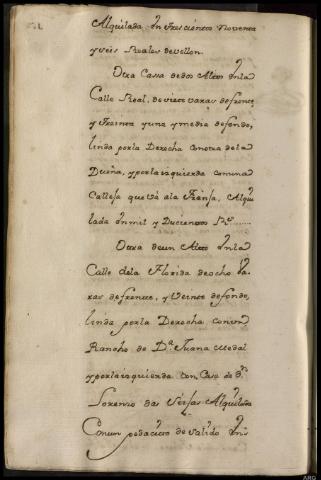 Alquilada En trescientos Noventa
y seis Reales de vellon.
Otra Cassa de dos Altos En la
Calle Real, de siete varas de frente,
y treinta y una y media de fondo,
linda por la Derecha con otra de la
Dueña, y por la izquierda con una
Calleja que vá a la Franja, Alqui
lada En mil y Ducientos Rs.
Otra de un Alto En la
Calle de la Florida de ocho Va-
ras de frente, y Veinte de fondo,
linda por la Derecha con un
Rancho de Da. Juana Medal
y por la izquierda con Casa de Dn.
Lorenzo das Seijas Alquilada
Con un pedacito de Salido En